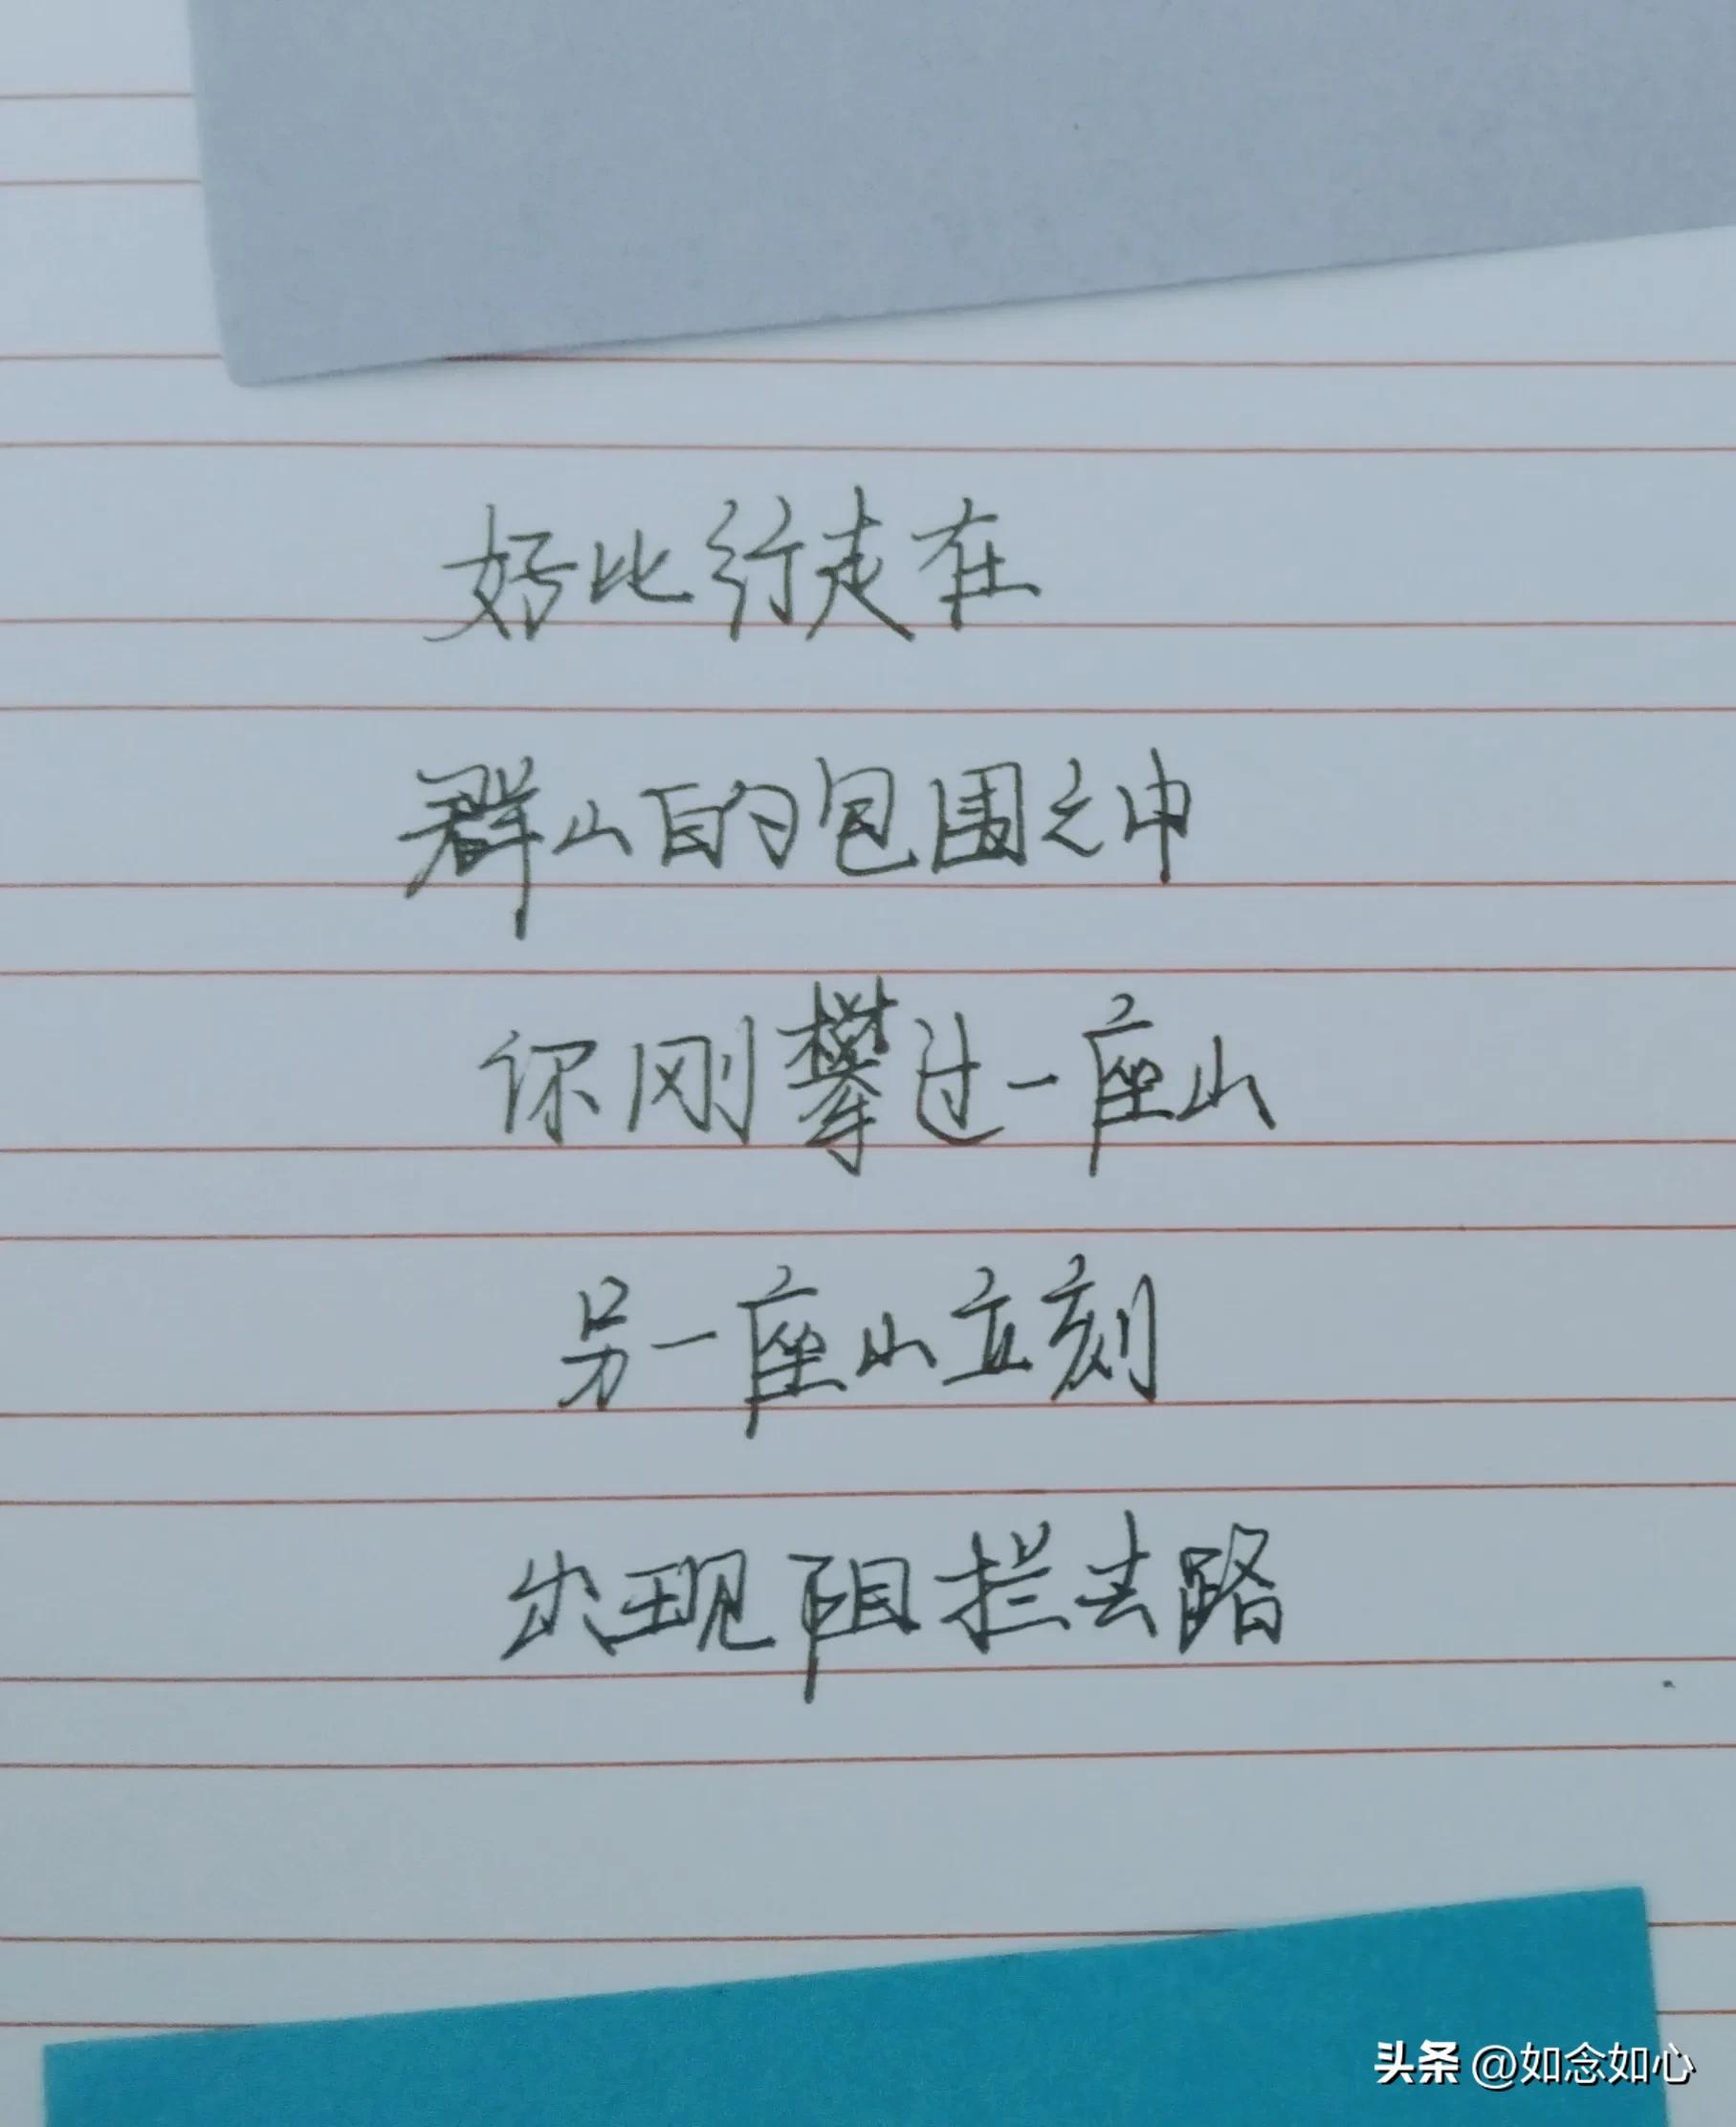 好比行走在
群山的包围之中
你刚攀过一座山
另一座山立刻
出现阻拦去路
头条 @如念如心